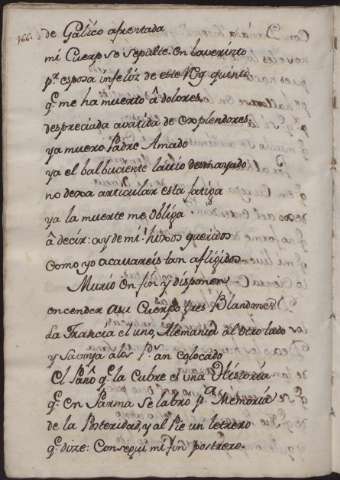 de Galico afrentada
mi Cuerpo se sepulte en laverinto
pr. esposa infeliz de este Phe. quinto
qe. me ha muerto â dolores,
despreciada avatida de explendores,
ya muero Padre Amado
ya el balbuciente lavio desmayado
no dexa articular esta fatiga
ya la muerte me obliga
â decir: ay de mi! hijos queridos
como yo acavareis tan afligidos
Murió en fin, y disponen
encender a su Cuerpo tres Blandones
La Francia el uno, Alemania al otro lado
y Savoya a los P. an colocado
El Paño qe. la Cubre es una Historia
qe. en Parma se labro pa. Memoria
de la Posteridad, y al Pie un letrero
qe. dize: Consegui mi fin postrero.